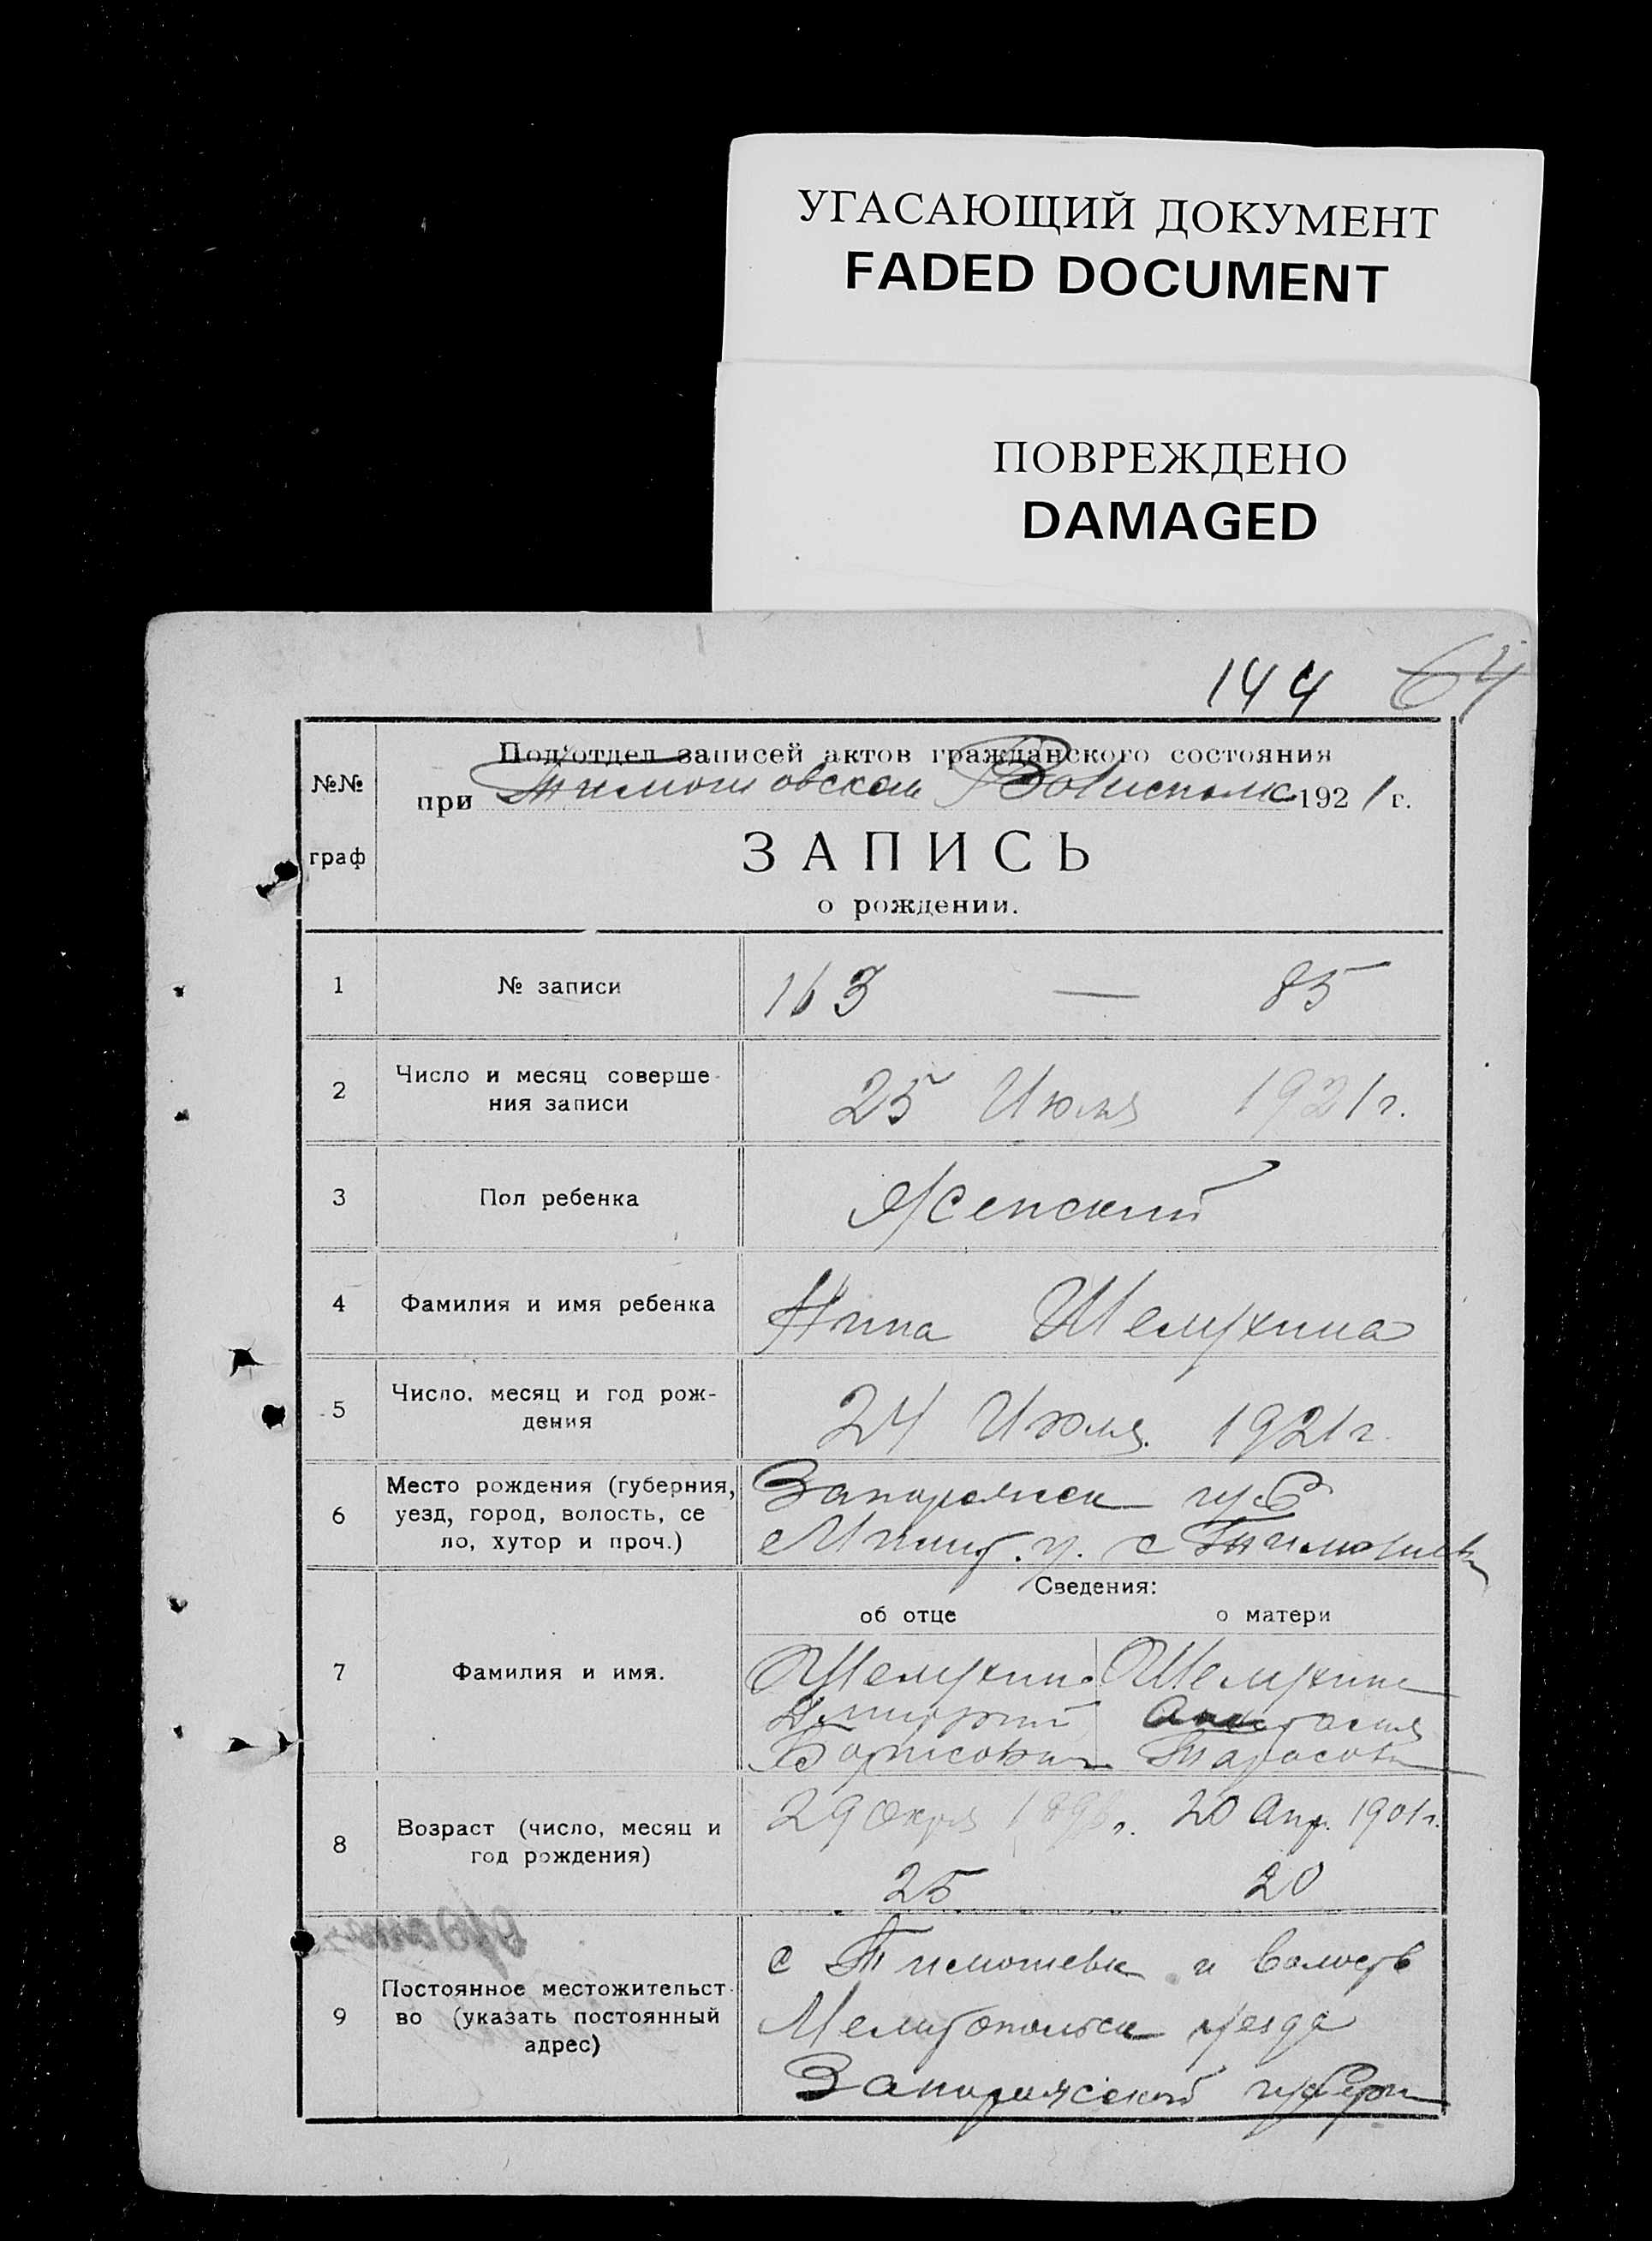 УГАСАЮЩИЙ ДОКУМЕНТ
FADED DOCUMENT
ПОВРЕЖДЕНО
DAMAGED
144 64
№№ граф
Под'отдел записей актов гражданского состояния
при Тимошовском Волисполк 1921 г.
ЗАПИСЬ
о рождении.
1 № записи 163 — 85
2 Число и месяц соверше-
ния записи
25 Июля 1921 г.
3 Пол ребенка Женский
4 Фамилия и имя ребенка Нина Шелухина
5 Число, месяц и год рож-
дения
24 Июля 1921 г.
6 Место рождения (губерния,
уезд, город, волость, се
ло, хутор и проч.)
Запорожск губ
Мелит. у. с Тимошевк
Сведения:
об отце о матери
7 Фамилия и имя.
Шелухин Шелухина
Дмитрий Анастасия
Борисович Тарасов
8 Возраст (число, месяц и
год рождения)
29 Окря 1896 г. 20 Апр. 1901 г.
25 20
9 Постоянное местожительст-
во (указать постоянный
адрес)
с Тимошевк и волость
Мелитопольск уезда
Запорожской губерн